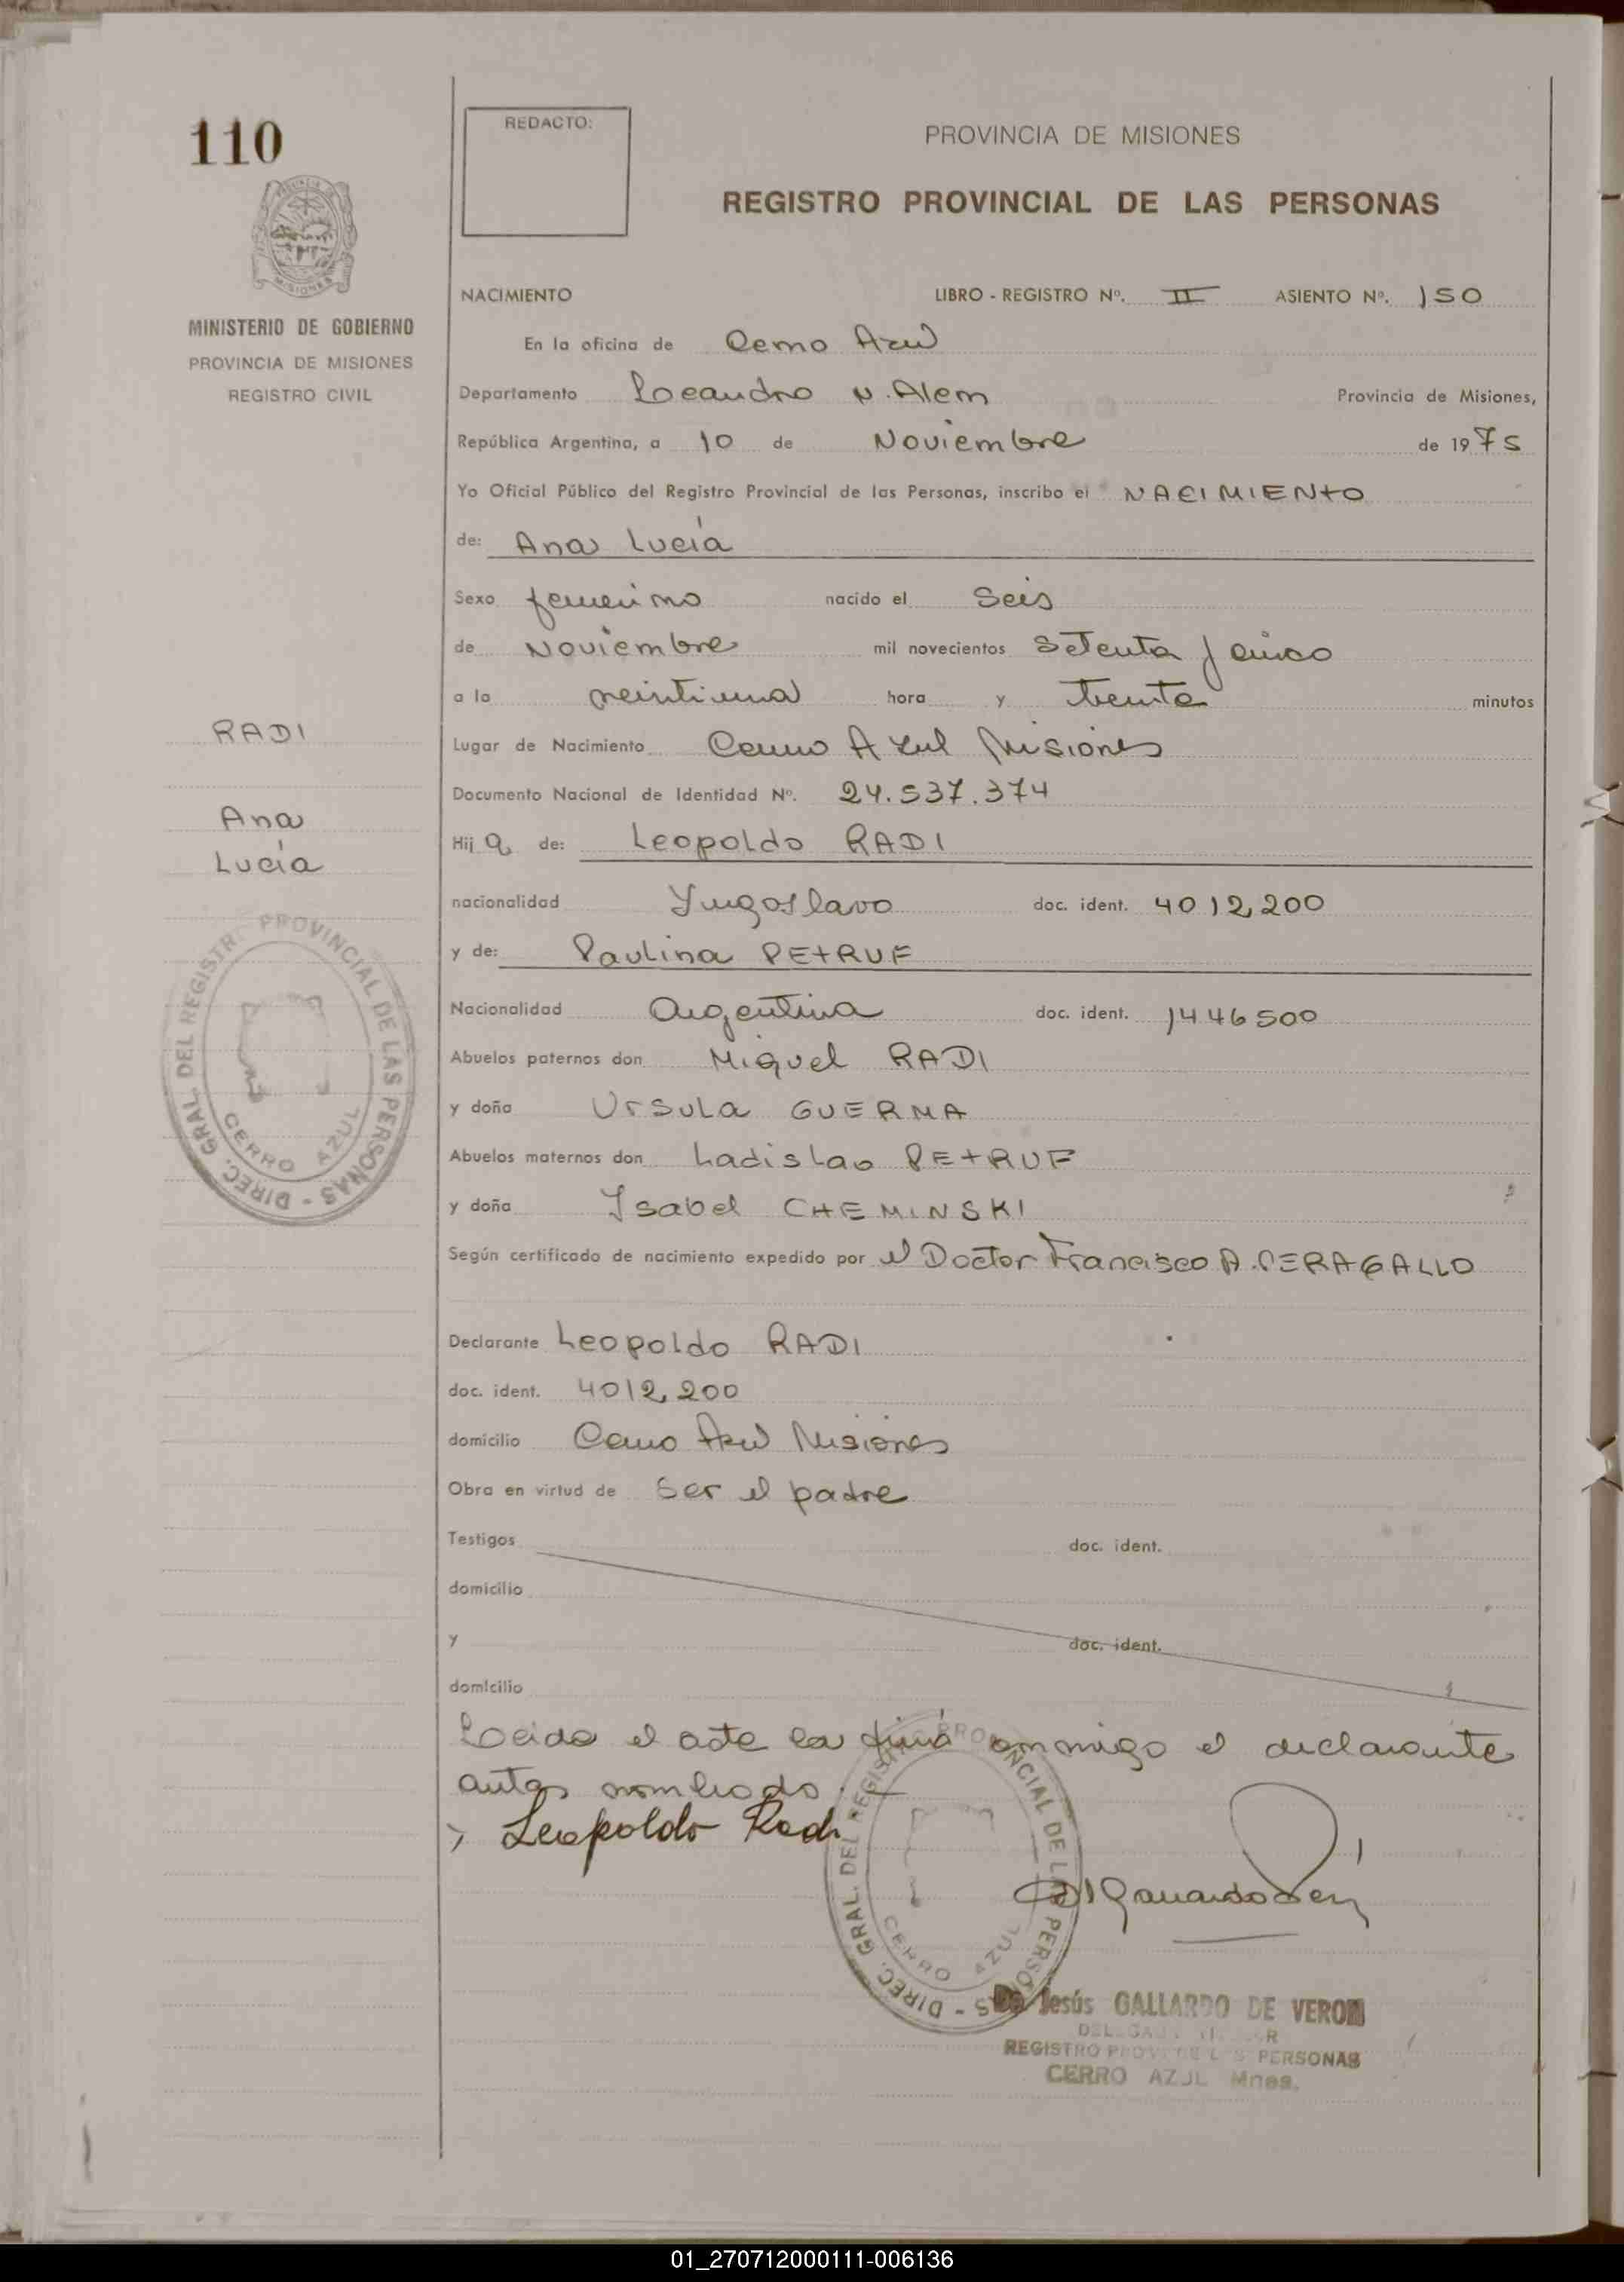 110
REDACTO:
PROVINCIA DE MISIONES
REGISTRO PROVINCIAL DE LAS PERSONAS
MINISTERIO DE GOBIERNO
PROVINCIA DE MISIONES
REGISTRO CIVIL
NACIMIENTO LIBRO - REGISTRO Nº. II ASIENTO Nº. 150
En la oficina de Cerro Azul
Departamento Leandro N. Alem Provincia de Misiones,
República Argentina, a 10 de Noviembre de 1975
Yo Oficial Público del Registro Provincial de las Personas, inscribo el NACIMIENTO
de: Ana Lucía
Sexo femenino nacido el Seis
de Noviembre mil novecientos setenta y cinco
a la veintiuna hora y treinta minutos
RADI
Lugar de Nacimiento Cerro Azul Misiones
Documento Nacional de Identidad Nº. 24.537.374
Ana
Lucía
Hija de: Leopoldo RADI
nacionalidad Yugoslavo doc. ident. 4012,200
y de: Paulina PETRUF
Nacionalidad Argentina doc. ident. 1446500
Abuelos paternos don Miguel RADI
y doña Ursula GUERMA
Abuelos maternos don Ladislao PETRUF
y doña Ysabel CHEMINSKI
Según certificado de nacimiento expedido por el Doctor Francisco A. PERAGALLO
DIREC. GRAL. DEL REGISTR PROVINCIAL DE LAS PERSONAS -
CERRO AZUL
Declarante Leopoldo RADI
doc. ident. 4012,200
domicilio Cerro Azul Misiones
Obra en virtud de ser el padre
Testigos doc. ident.
domicilio
y doc. ident.
domicilio
Leida el acta la firma conmigo el declarante
antes nombrado.
Leopoldo Radi
DIREC. GRAL. DEL REGISTRO PROVINCIAL DE LAS PERSONAS -
CERRO AZUL
Jesús GALLARDO DE VERON
REGISTRO PROV. DE LAS PERSONAS
CERRO AZUL Mnes.
01_270712000111-006136